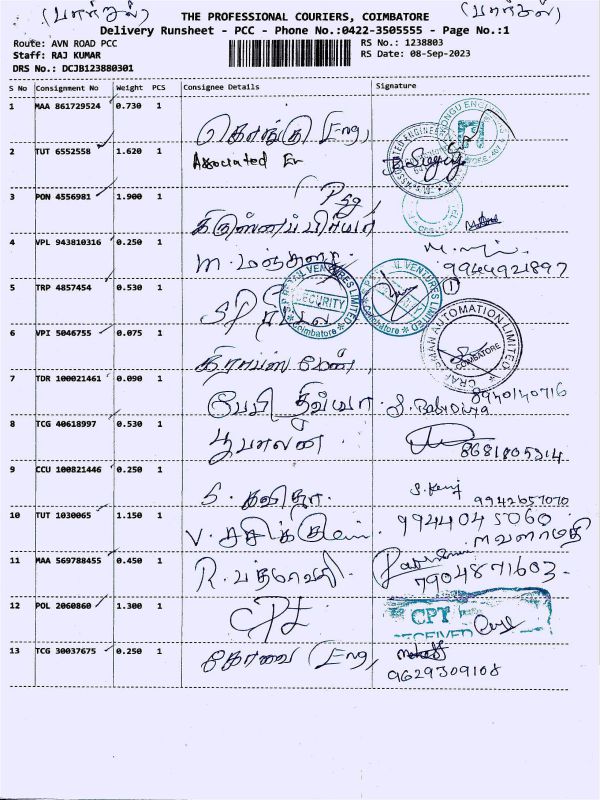 (பார்சல்)
(பார்சல்)
THE PROFESSIONAL COURIERS, COIMBATORE
Delivery Runsheet - PCC - Phone No.:0422-3505555 - Page No.:1
Route: AVN ROAD PCC
RS No.: 1238803
Staff: RAJ KUMAR
RS Date: 08-Sep-2023
DRS No.: DCJB123880301
S No Consignment No Weight PCS Consignee Details Signature
1 MAA 861729524 0.730 1
கொங்கு Eng,
2 TUT 6552558 1.620 1
Associated En
3 PON 4556981 1.900 1
4 VPL 943810316 0.250 1
M.
9944921897
5 TRP 4857454 0.530 1
SP
RETAIL VENTURES LIMITED
SECURITY
Coimbatore
RETAIL VENTURES LIMITED
Coimbatore
6 VPI 5046755 0.075 1
CRAFTSMAN AUTOMATION LIMITED
COIMBATORE
7 TDR 100021461 0.090 1
பேபி திவ்யா. S. Baby Divya
8940140716
8 TCG 40618997 0.530 1
பூபாலன்
8681805314
9 CCU 100821446 0.250 1
S. கவிதா.
9942657070
10 TUT 1030065 1.150 1
V.
9944045060
11 MAA 569788455 0.450 1
R. பத்மாவதி.
7904871603
12 POL 2060860 1.300 1
CPT
CPT
RECEIVED
13 TCG 30037675 0.250 1
கோவை Eng,
9629309108